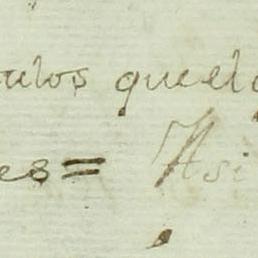 ulos queel
es= Asi